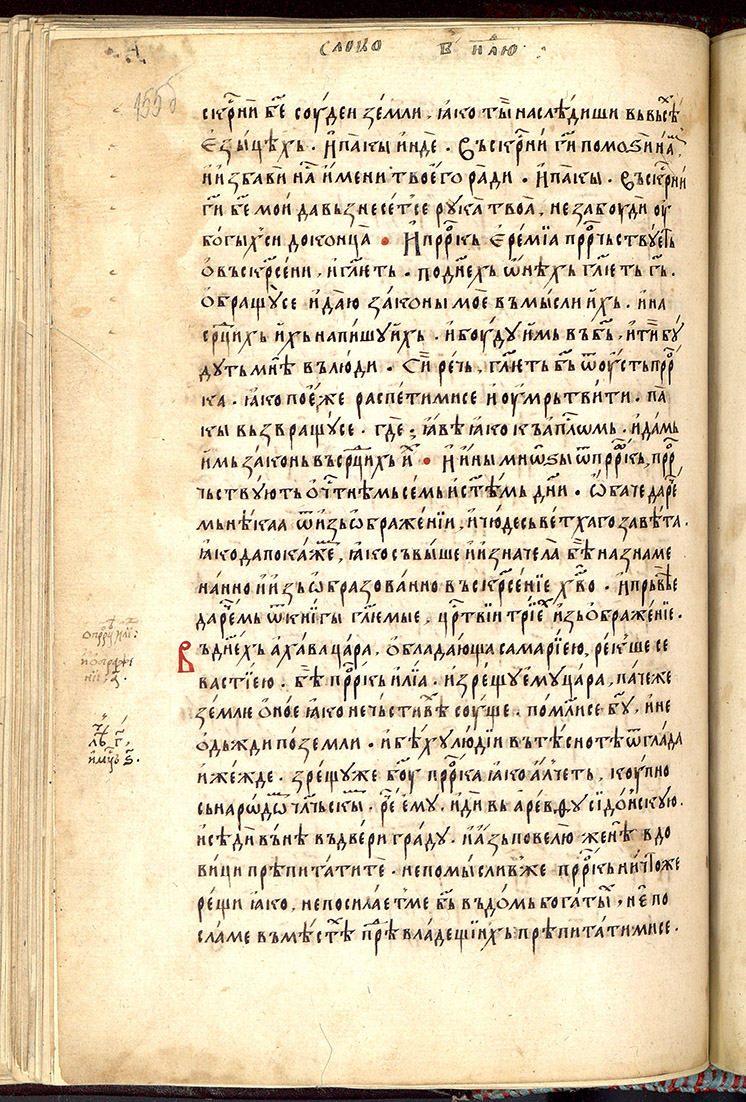 слово в҃ нⷣлю
155б
скрⷭ҇ни бж҃е соуди земли . ꙗко ты̀ наслѣ́диши въ въсѣⷯ
е҆зы́цѣхь . И҆ па́кы и҆нде . Въскрⷭ҇ни гⷭ҇и помоѕи на́мь
и҆ и҆збави на́ имени твоего ра́ди . И҆ па́кы . Въскрⷭ҇ни
гⷭ҇и бж҃е мои да възнесе́тсе рука̀ твоа̀ , не забоуди оу҆
богыⷯ си до конца̀ • И҆ прⷪ҇ркь Е҆ре́мїа прⷪ҇рчьствуеть
о въскрⷭ҇се́ни , и҆ гл҃еть . по дне́хь ѡ҆нѣхь гл҃еть гь҃ .
о҆бращꙋ̀се и҆ даю̀ зако́ны моѐ въ мы́сли и҆́хь . и҆ на
срⷣцихь и҆́хь напи́шу и҆́хь . и҆ боу́ду и҆́мь въ бь҃ , и҆ ти̏ бу́
дуть мнѣ̀ въ лю́ди . Си̏ речь , гл҃еть бь҃ ѿ оу҆сть прⷪ҇р
ка . ꙗко пое҆́же распе́тимисе и҆ оу҆мрьтви́ти . па
кы възвращꙋ́се . где ; ꙗ҆вѣ ꙗко къ а҆пⷭ҇лѡмь . и҆ да́мь
и҆мь зако́нь въ срⷣцихь иⷯ • И҆ и҆ны мнѡѕы ѿ прⷪ҇ркь , прⷪ҇р
чьствую́ть о чⷭ҇тнѣмь семь и҆ ст҃ѣмь дн҃и . Ѡ҆ба́че да ре́
мь нѣ́каа ѿ и҆зь ѡ҆браже́нїи , и҆ чюдесь ве́тхаго завѣ́та .
ꙗко да пока́жеⷨ , ꙗко съвы́ше и҆ и҆знача́ла бѣ̀ назнаме
на́нно и҆ и҆зьѡ҆бразова́нно въскрⷭ҇се́нїе хв҃о . И҆ прьвѣе
да рече́мь ѿ кни́гы гл҃емые , црⷭ҇твїи трїеⷯ и҆зьѡ҆браже́нїе .
Въ дне́хь а҆ха́ва цара̀ , о҆блада́юща самарі́ею , рекше се
васті́ею . бѣ̀ прⷪ҇ркь и҆лі́а . и҆ зре́щу е҆му̀ цара̀ , па́чеже
землю о҆но́е ꙗко нечьсти́вѣ соу҆ще . помл҃исе бг҃у , и҆ не
о҆дьжди по земли . и҆ бѣ́хꙋ лю́дїи въ тѣснотѣ̀ ѿ гла́да
и҆ же́жде . зре́щуже бг҃оу прⷪ҇рка ꙗко а҆́лчеть , коу́пно
сь наро́дѡⷨ чл҃чьскыⷨ . ре́ е҆му̀ . и҆ди̏ въ а҆ре́вѳꙋ сїдо́нскую .
и҆ сѣди̏ вънѣ̀ въ двери гра́ду . и҆ а҆́зь повелю̀ женѣ̀ вдо
ви́ци прѣпита́ти те . не помы́сливже прⷪ҇ркь ничто́же
рещи̏ ꙗко , не посила́ет ме бь҃ въ до́мь бога́тыⷯ , н҄е по
сла́ ме въ мѣ́стѣ прѣⷣ владе́щїихь прѣпита́ти мисе .
ѡ прⷪ҇рцѣ илі́и :